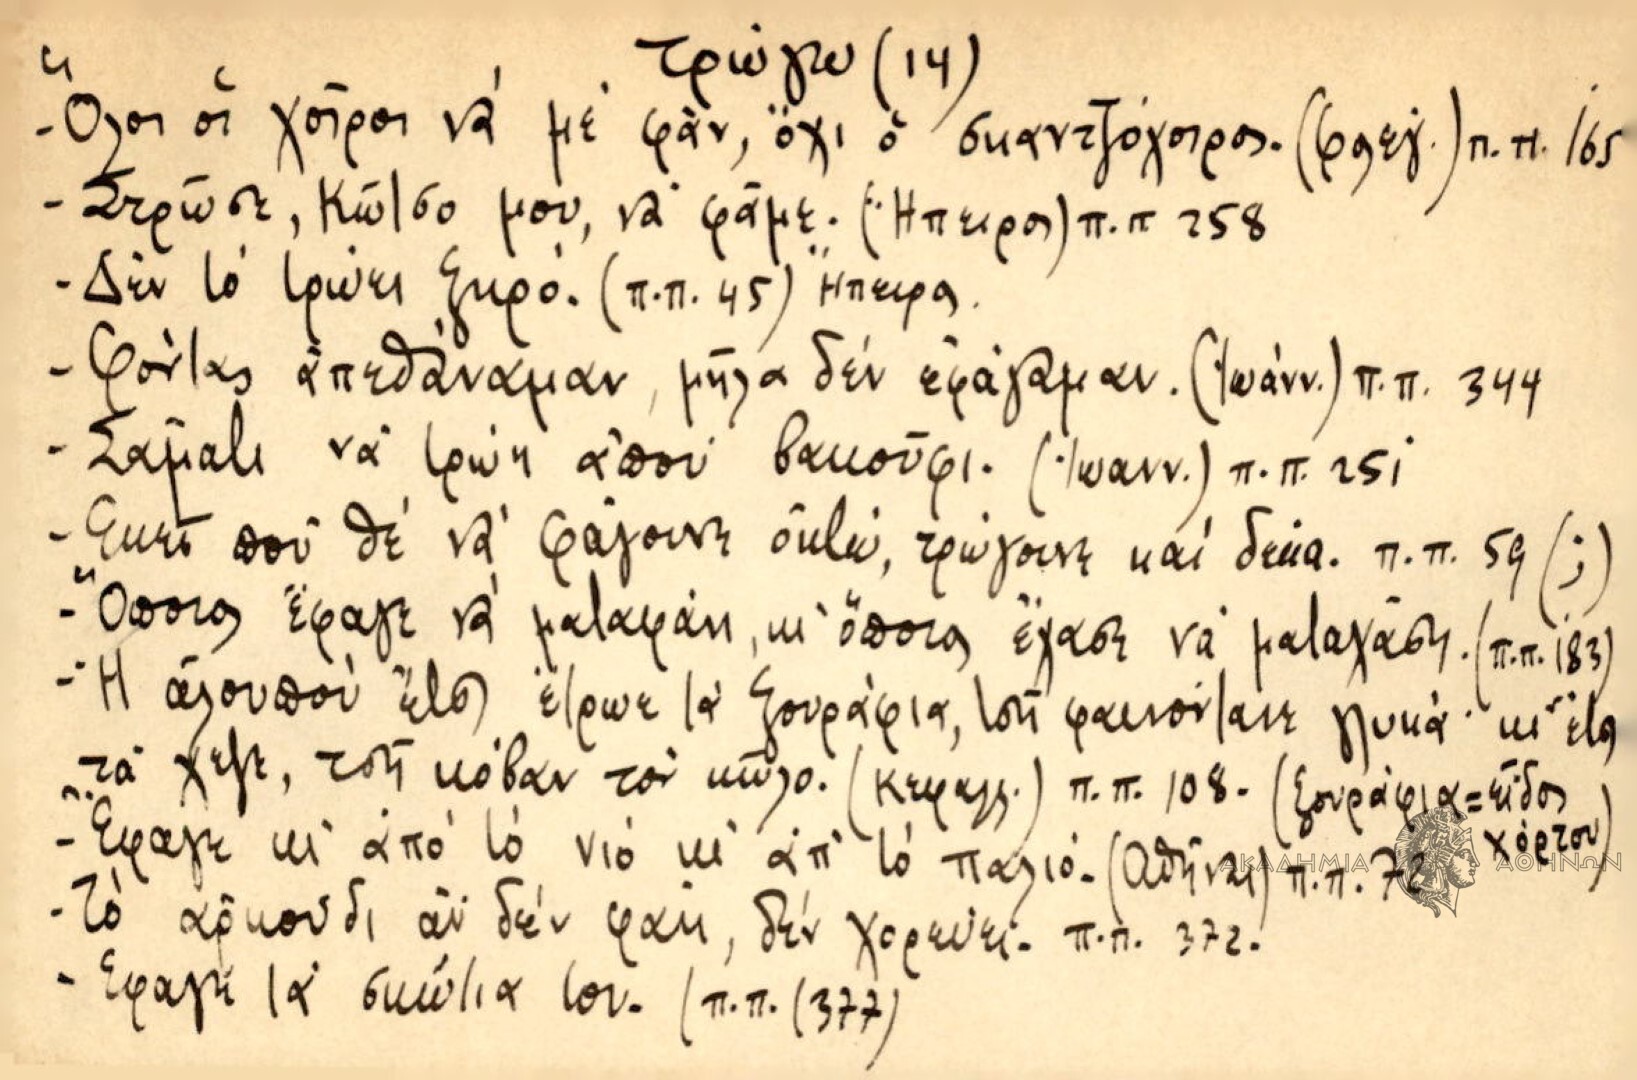 τρώγω (14)
- Ὅλοι οἱ χοῖροι νά μέ φᾶν, ὄχι ὁ σκαντζόχοιρος. (Φλεγ.) π.π. 165
- Στρῶσε, Κῶτσο μου, νά φᾶμε. (Ἤπειρος) π.π 258
- Δέν τό τρώει ξερό. (π.π. 45) Ἤπειρος.
- Φόντας ἀπεθάναμαν, μῆλα δέν ἐφάγαμαν. (Ἰωάνν.) π.π. 344
- Σάματι νά τρώῃ ἀπού βακούφι. (Ἰωανν.) π.π. 251
- Ἐκεῖ πού θέ νά φάγουνε ὀκτώ, τρώγουνε καί δέκα. π.π. 59 (;)
- Ὅποιος ἔφαγε νά ματαφάῃ, κι' ὅποιος ἔχασε νά ματαχάσῃ. (π.π. 183)
- Ἡ ἀλουπού ἔτσι ἔτρωε τά ξουράφια, τσῆ φαινόντανε γλυκά κι' ἔτσι
τά χεζε, τσῆ κόβαν τόν κῶλο. (Κεφαλλ.) π.π. 108. (ξουράφια = εἶδος
χόρτου)
- Ἔφαγε κι' ἀπό τό νιό κι' ἀπ' τό παλιό. (Ἀθῆναι) π.π. 72
- Τό ἀρκούδι ἄν δέν φάῃ, δέν χορεύει. π.π. 372.
- Ἔφαγε τά σκώτια του. (π.π. (377)
ΑΚΑΔΗΜΙΑ ΑΘΗΝΩΝ